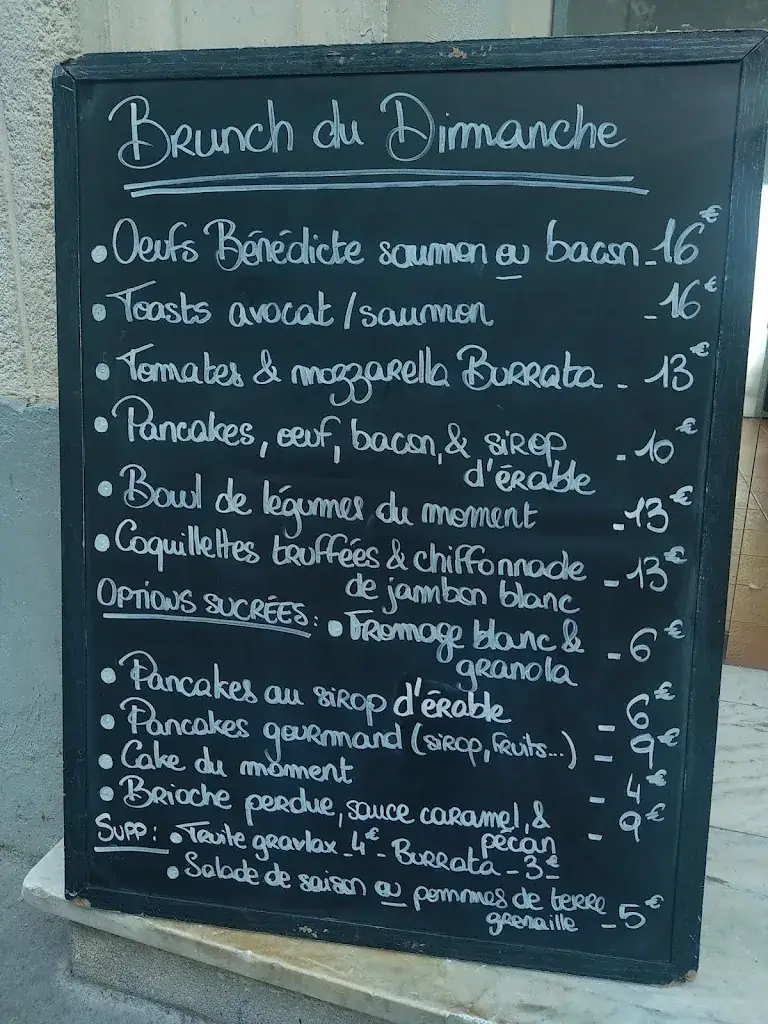 Brunch du Dimanche
• Oeufs Bénédicte saumon ou bacon - 16€
• Toasts avocat / saumon - 16€
• Tomates & mozzarella Burrata - 13€
• Pancakes, oeuf, bacon, & sirop - 10€
d'érable
• Bowl de légumes du moment - 13€
• Coquillettes truffées & chiffonnade - 13€
de jambon blanc
Options sucrées : • Fromage blanc & - 6€
granola
• Pancakes au sirop d'érable - 6€
• Pancakes gourmand (sirop, fruits...) - 9€
• Cake du moment - 4€
• Brioche perdue, sauce caramel, & - 9€
pécan
Supp : • Truite gravlax - 4€ - Burrata - 3€
• Salade de saison ou pommes de terre - 5€
grenaille